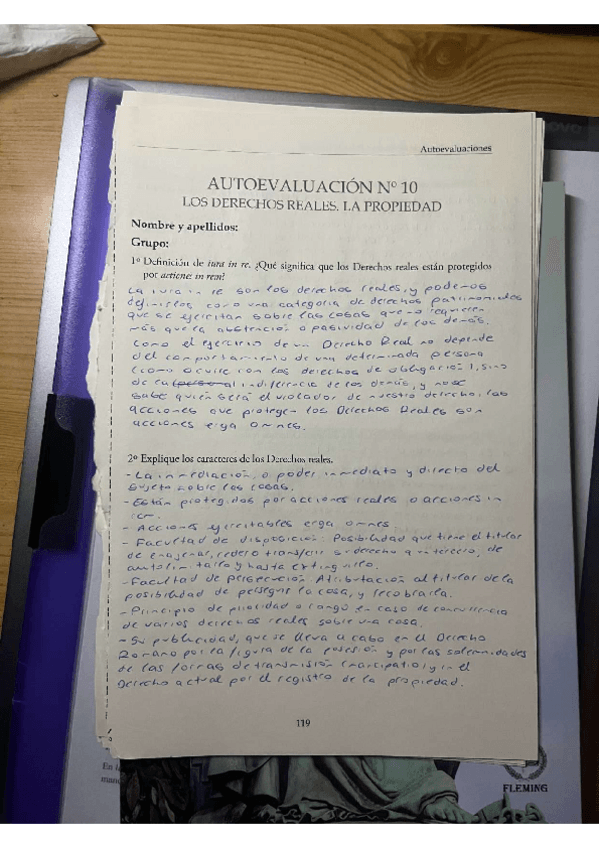 Autoevaluaciones
AUTOEVALUACIÓN Nº 10
LOS DERECHOS REALES. LA PROPIEDAD
Nombre y apellidos:
Grupo:
1º Definición de iura in re. ¿Qué significa que los Derechos reales están protegidos
por actiones in rem?
La iura in re son los derechos reales, y podemos
definirlos como una categoría de derechos patrimoniales
que se ejercitan sobre las cosas que no requieren
más que la abstención o pasividad de los demás.
Como el ejercicio de un Derecho Real no depende
del comportamiento de una determinada persona
(como ocurre con los derechos de obligación), sino
de la indiferencia de los demás, y no se
sabe quién será el violador de nuestro derecho, las
acciones que protegen los Derechos Reales son
acciones erga omnes.
2º Explique los caracteres de los Derechos reales.
- La inmediación, o poder inmediato y directo del
sujeto sobre las cosas.
- Están protegidos por acciones reales o acciones in
rem.
- Acciones ejercitables erga omnes
- Facultad de disposición: Posibilidad que tiene el titular
de enajenar, ceder o transferir su derecho a un tercero, de
y hasta extinguirlo.
- Facultad de persecución. Atribución al titular de la
posibilidad de perseguir la cosa, y recobrarla.
- Principio de prioridad o rango en caso de concurrencia
de varios derechos reales sobre una cosa.
- Su publicidad, que se lleva a cabo en el Derecho
Romano por la figura de la posesión y por las solemnidades
de las formas de transmisión (mancipatio) y en el
Derecho actual por el registro de la propiedad.
119
FLEMING